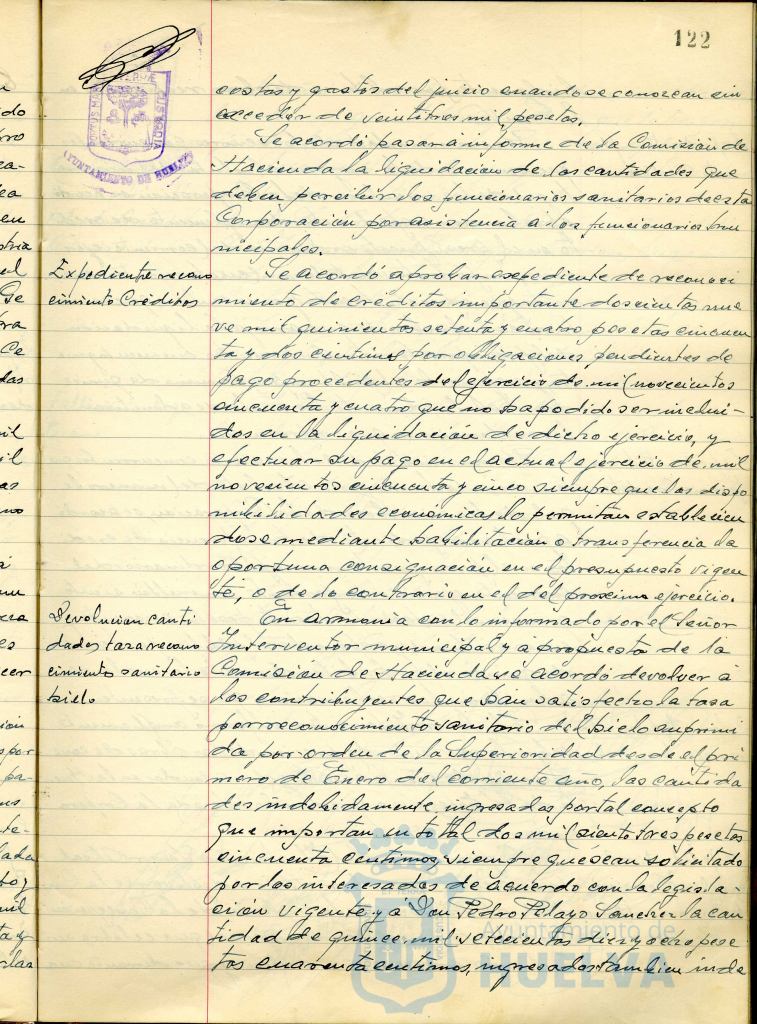 122
AYUNTAMIENTO DE HUELVA
costas y gastos del juicio cuando se conozcan sin
exceder de veintitres mil pesetas.
Se acordó pasar a informe de la Comisión de
Hacienda la liquidación de las cantidades que
deben percibir los funcionarios sanitarios de esta
Corporación por asistencia a los funcionarios mu
nicipales.
Expediente recono
cimiento Créditos
Se acordó aprobar expediente de reconoci
miento de créditos importante doscientas nue
ve mil quinientas setenta y cuatro pesetas cincuen
ta y dos centimos por obligaciones pendientes de
pago procedentes del ejercicio de mil novecientos
cincuenta y cuatro que no ha podido ser inclui-
dos en la liquidación de dicho ejercicio, y
efectuar su pago en el actual ejercicio de mil
novecientos cincuenta y cinco siempre que las dispo
nibilidades económicas lo permitan establecien
dose mediante habilitación o transferencia la
oportuna consignación en el presupuesto vigen
te, o de lo contrario en el del proximo ejercicio.
Devolucion canti
dades tasa recono
cimiento sanitario
hielo
En armonia con lo informado por el Señor
Interventor municipal y a propuesta de la
Comisión de Hacienda se acordó devolver a
los contribuyentes que han satisfecho la tasa
por reconocimiento sanitario del hielo suprimi
da por orden de la Superioridad desde el pri
mero de Enero del corriente año, las cantida
des indebidamente ingresadas por tal concepto
que importan en total dos mil ciento tres pesetas
cincuenta centimos, siempre que sean solicitado
por los interesados de acuerdo con la legisla-
ción vigente y a Don Pedro Pelayo Sanchez la can
tidad de quince mil setecientas diez y ocho pese
tas cuarenta centimos, ingresadas tambien inde
Ayuntamiento de
HUELVA